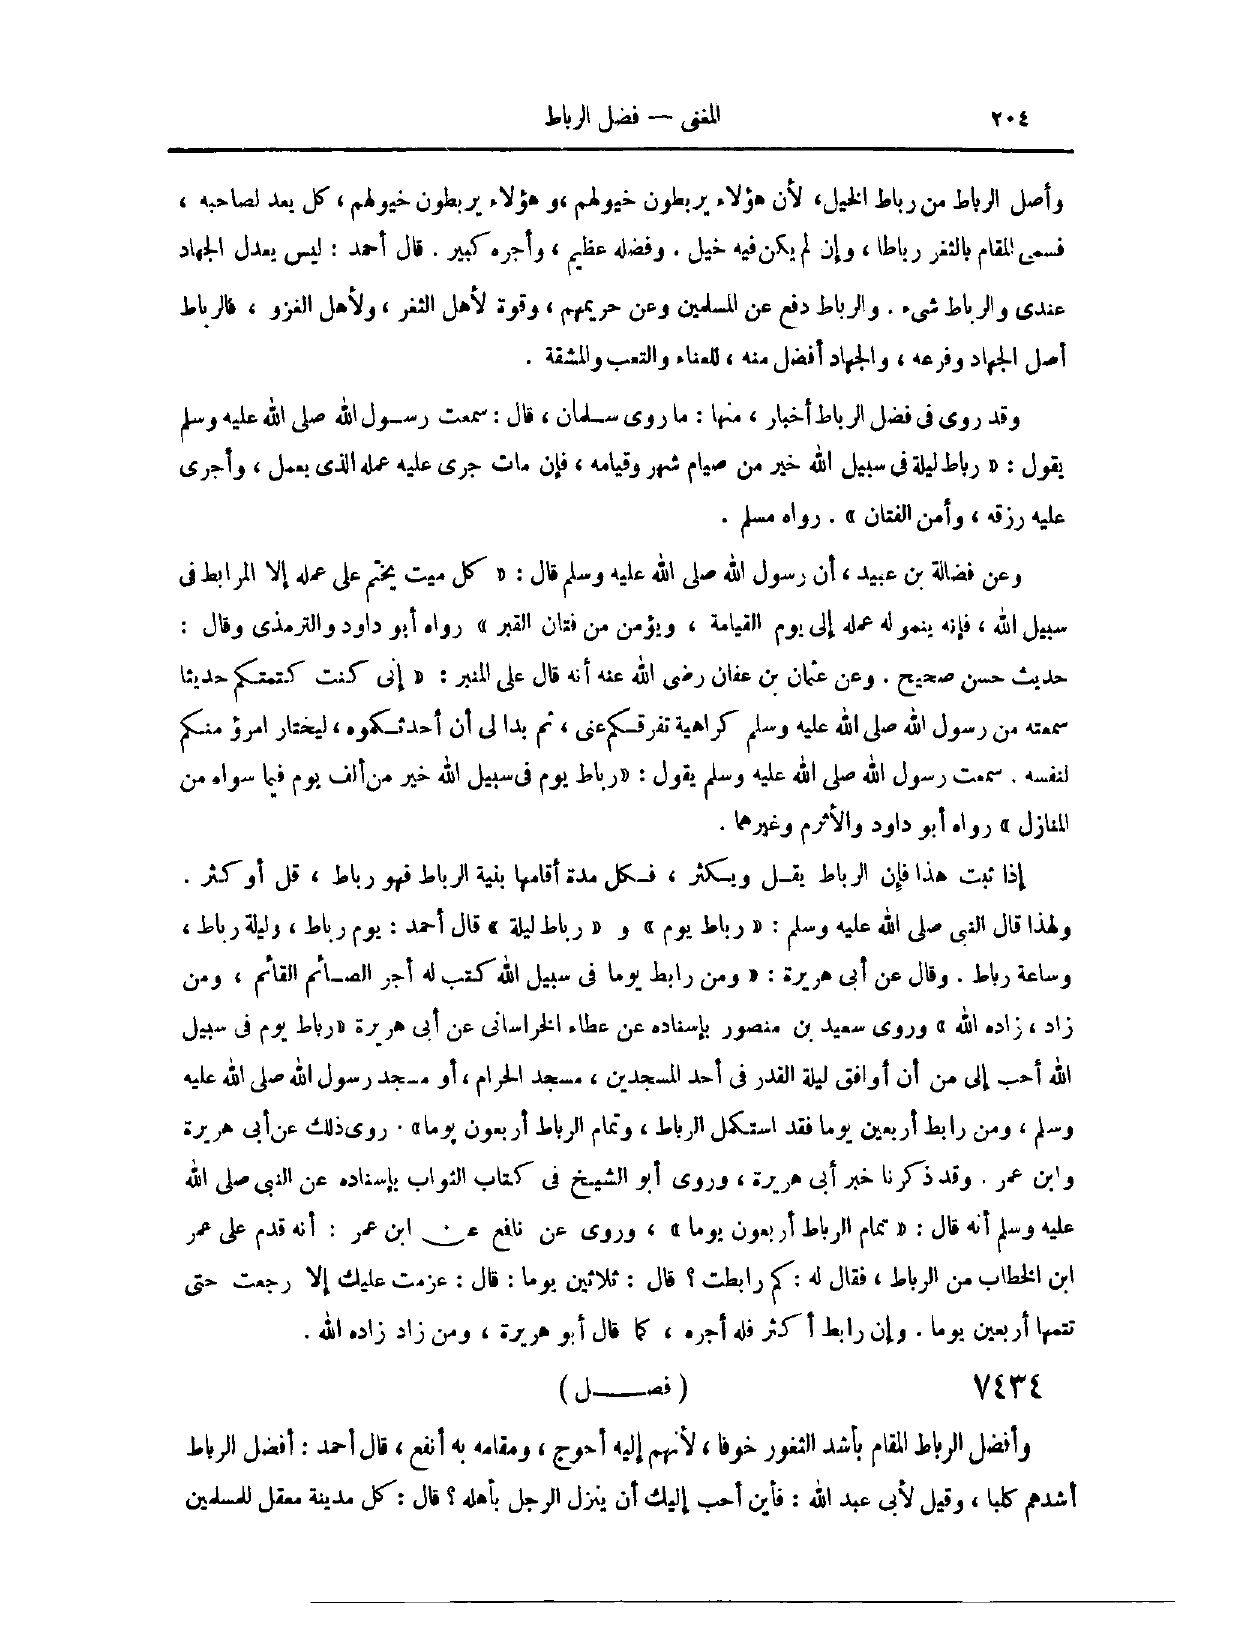 ٢٠٤ المغنى — فضل الرباط
وأصل الرباط من رباط الخيل، لأن هؤلاء يربطون خيولهم ،و هؤلاء يربطون خيولهم ، كل يعد لصاحبه ،
فسمى المقام بالثغر رباطا ، وإن لم يكن فيه خيل . وفضله عظيم ، وأجره كبير . قال أحمد : ليس يعدل الجهاد
عندى والرباط شىء . والرباط دفع عن المسلمين وعن حريمهم ، وقوة لأهل الثغر ، ولأهل الغزو ، فالرباط
أصل الجهاد وفرعه ، والجهاد أفضل منه ، للعناء والتعب والمشقة .
وقد روى فى فضل الرباط أخبار ، منها : ما روى سلمان ، قال : سمعت رسول الله صلى الله عليه وسلم
يقول : « رباط ليلة فى سبيل الله خير من صيام شهر وقيامه ، فإن مات جرى عليه عمله الذى يعمل ، وأجرى
عليه رزقه ، وأمن الفتان » . رواه مسلم .
وعن فضالة بن عبيد ، أن رسول الله صلى الله عليه وسلم قال : « كل ميت يختم على عمله إلا المرابط فى
سبيل الله ، فإنه ينمو له عمله إلى يوم القيامة ، ويؤمن من فتان القبر » رواه أبو داود والترمذى وقال :
حديث حسن صحيح . وعن عثمان بن عفان رضى الله عنه أنه قال على المنبر : « إنى كنت كتمتكم حديثا
سمعته من رسول الله صلى الله عليه وسلم كراهية تفرقكم عنى ، ثم بدا لى أن أحدثكموه ، ليختار امرؤ منكم
لنفسه . سمعت رسول الله صلى الله عليه وسلم يقول : «رباط يوم فى سبيل الله خير من ألف يوم فيما سواه من
المنازل » رواه أبو داود والأثرم وغيرهما .
إذا ثبت هذا فإن الرباط يقل ويكثر ، فكل مدة أقامها بنية الرباط فهو رباط ، قل أو كثر .
ولهذا قال النبى صلى الله عليه وسلم : « رباط يوم » و « رباط ليلة » قال أحمد : يوم رباط ، وليلة رباط ،
وساعة رباط . وقال عن أبى هريرة : « ومن رابط يوما فى سبيل الله كتب له أجر الصائم القائم ، ومن
زاد ، زاده الله » وروى سعيد بن منصور بإسناده عن عطاء الخراسانى عن أبى هريرة «رباط يوم فى سبيل
الله أحب إلى من أن أوافق ليلة القدر فى أحد المسجدين ، مسجد الحرام ، أو مسجد رسول الله صلى الله عليه
وسلم ، ومن رابط أربعين يوما فقد استكمل الرباط ، وتمام الرباط أربعون يوما» . روى ذلك عن أبى هريرة
وابن عمر . وقد ذكرنا خبر أبى هريرة ، وروى أبو الشيخ فى كتاب الثواب بإسناده عن النبى صلى الله
عليه وسلم أنه قال : « تمام الرباط أربعون يوما » ، وروى عن نافع عن ابن عمر : أنه قدم على عمر
ابن الخطاب من الرباط ، فقال له : كم رابطت ؟ قال : ثلاثين يوما : قال : عزمت عليك إلا رجعت حتى
تتمها أربعين يوما . وإن رابط أكثر فله أجره ، كما قال أبو هريرة ، ومن زاد زاده الله .
٧٤٣٤ ( فصل )
وأفضل الرباط المقام بأشد الثغور خوفا ، لأنهم إليه أحوج ، ومقامه به أنفع ، قال أحمد : أفضل الرباط
أشدهم كلبا ، وقيل لأبى عبد الله : فأين أحب إليك أن ينزل الرجل بأهله ؟ قال : كل مدينة معقل للمسلمين